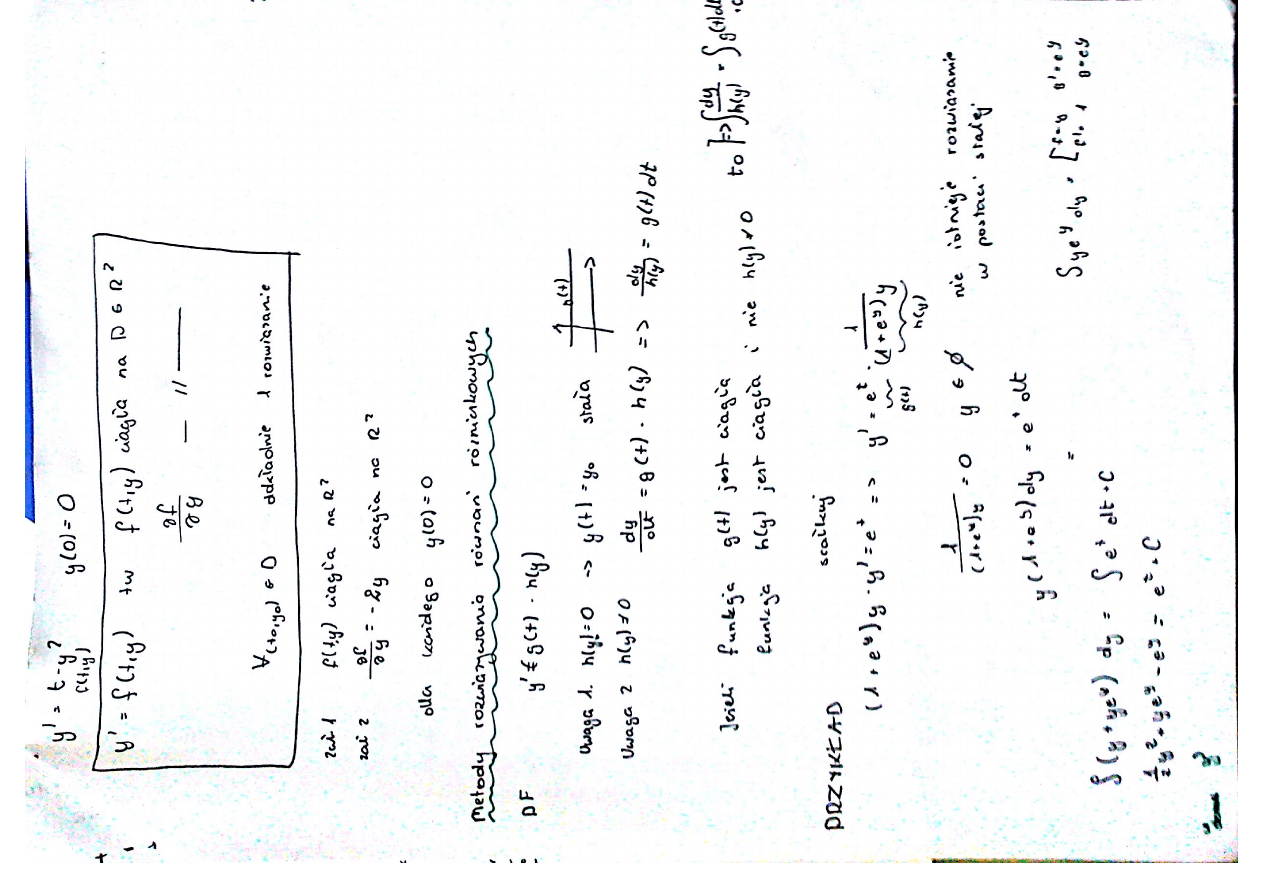 y' = t - y²     y(0) = 0
f(t,y)
y' = f(t,y)   tw   f(t,y) ciągła na D ∈ R²
∂f/∂y   — // —
∀(t0,y0) ∈ D   dokładnie 1 rozwiązanie
zał 1   f(t,y) ciągła na R²
zał 2   ∂f/∂y = -2y   ciągła na R²
dla każdego   y(0) = 0
Metody rozwiązywania równań różniczkowych
DF   y' = g(t) · h(y)
Uwaga 1. h(y) = 0 -> y(t) = y0   stała   h(t)
Uwaga 2 h(y) ≠ 0   dy/dt = g(t) · h(y) => dy/h(y) = g(t) dt
Jeżeli funkcja g(t) jest ciągła
funkcja h(y) jest ciągła i nie h(y) ≠ 0   to => ∫ dy/h(y) = ∫ g(t) dt + C
PRZYKŁAD   scałkuj
(1 + e^y) y · y' = e^t => y' = e^t · 1/((1 + e^y) y)
g(t)   h(y)
1/((1+e^y) y) = 0   y ∈ ∅   nie istnieje rozwiązanie
w postaci stałej
y (1 + e^y) dy = e^t dt
=
∫ (y + ye^y) dy = ∫ e^t dt + C   ∫ ye^y dy = [f = y   g' = e^y
f' = 1   g = e^y
½ y² + ye^y - e^y = e^t + C